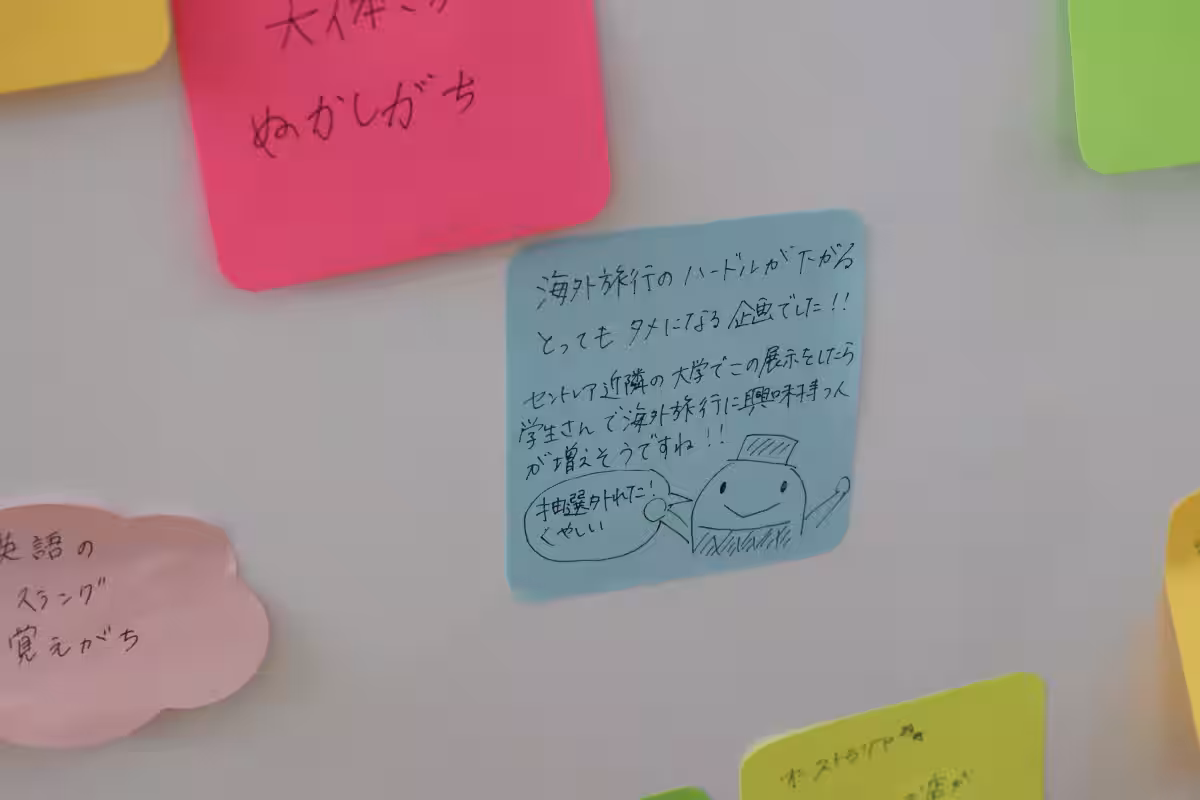 ぬかしがち
海外旅行のハードルが下がる
とってもタメになる企画でした!!
セントレア近隣の大学でこの展示をしたら
学生さんで海外旅行に興味持つ人
が増えそうですね!!
抽選外れた!
くやしい
英語の
スラング
覚えがち
オーストラリア